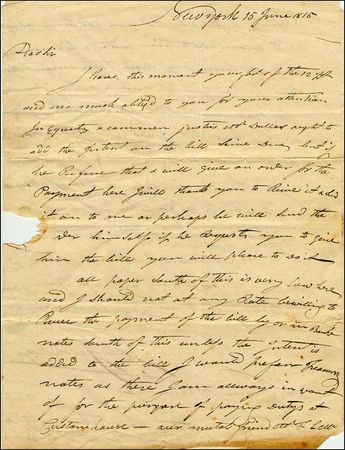 New York 15 June 1815
Dear Sir
I have this moment your of the 12
and am much obliged to you for your attention
In Equity & common justice Mr Dallas ought to
add the Interest on the bill Since Due, but if
he Refuse that & will give an order for the
Payment here I will thank you to Receive it add
it on to me or perhaps he will send the
himself if he Requests you to give
him the bill you will please to do it
all paper South of this is very low here
and I should not at any Rate be willing to
Receive the payment of the bill by or in Bank
notes South of this unless the Interest is
added to the bill I would prefer Treasury
notes as these I am allways in want
of for the purpose of paying Dutys at
Custom house — our mutual friend Mr